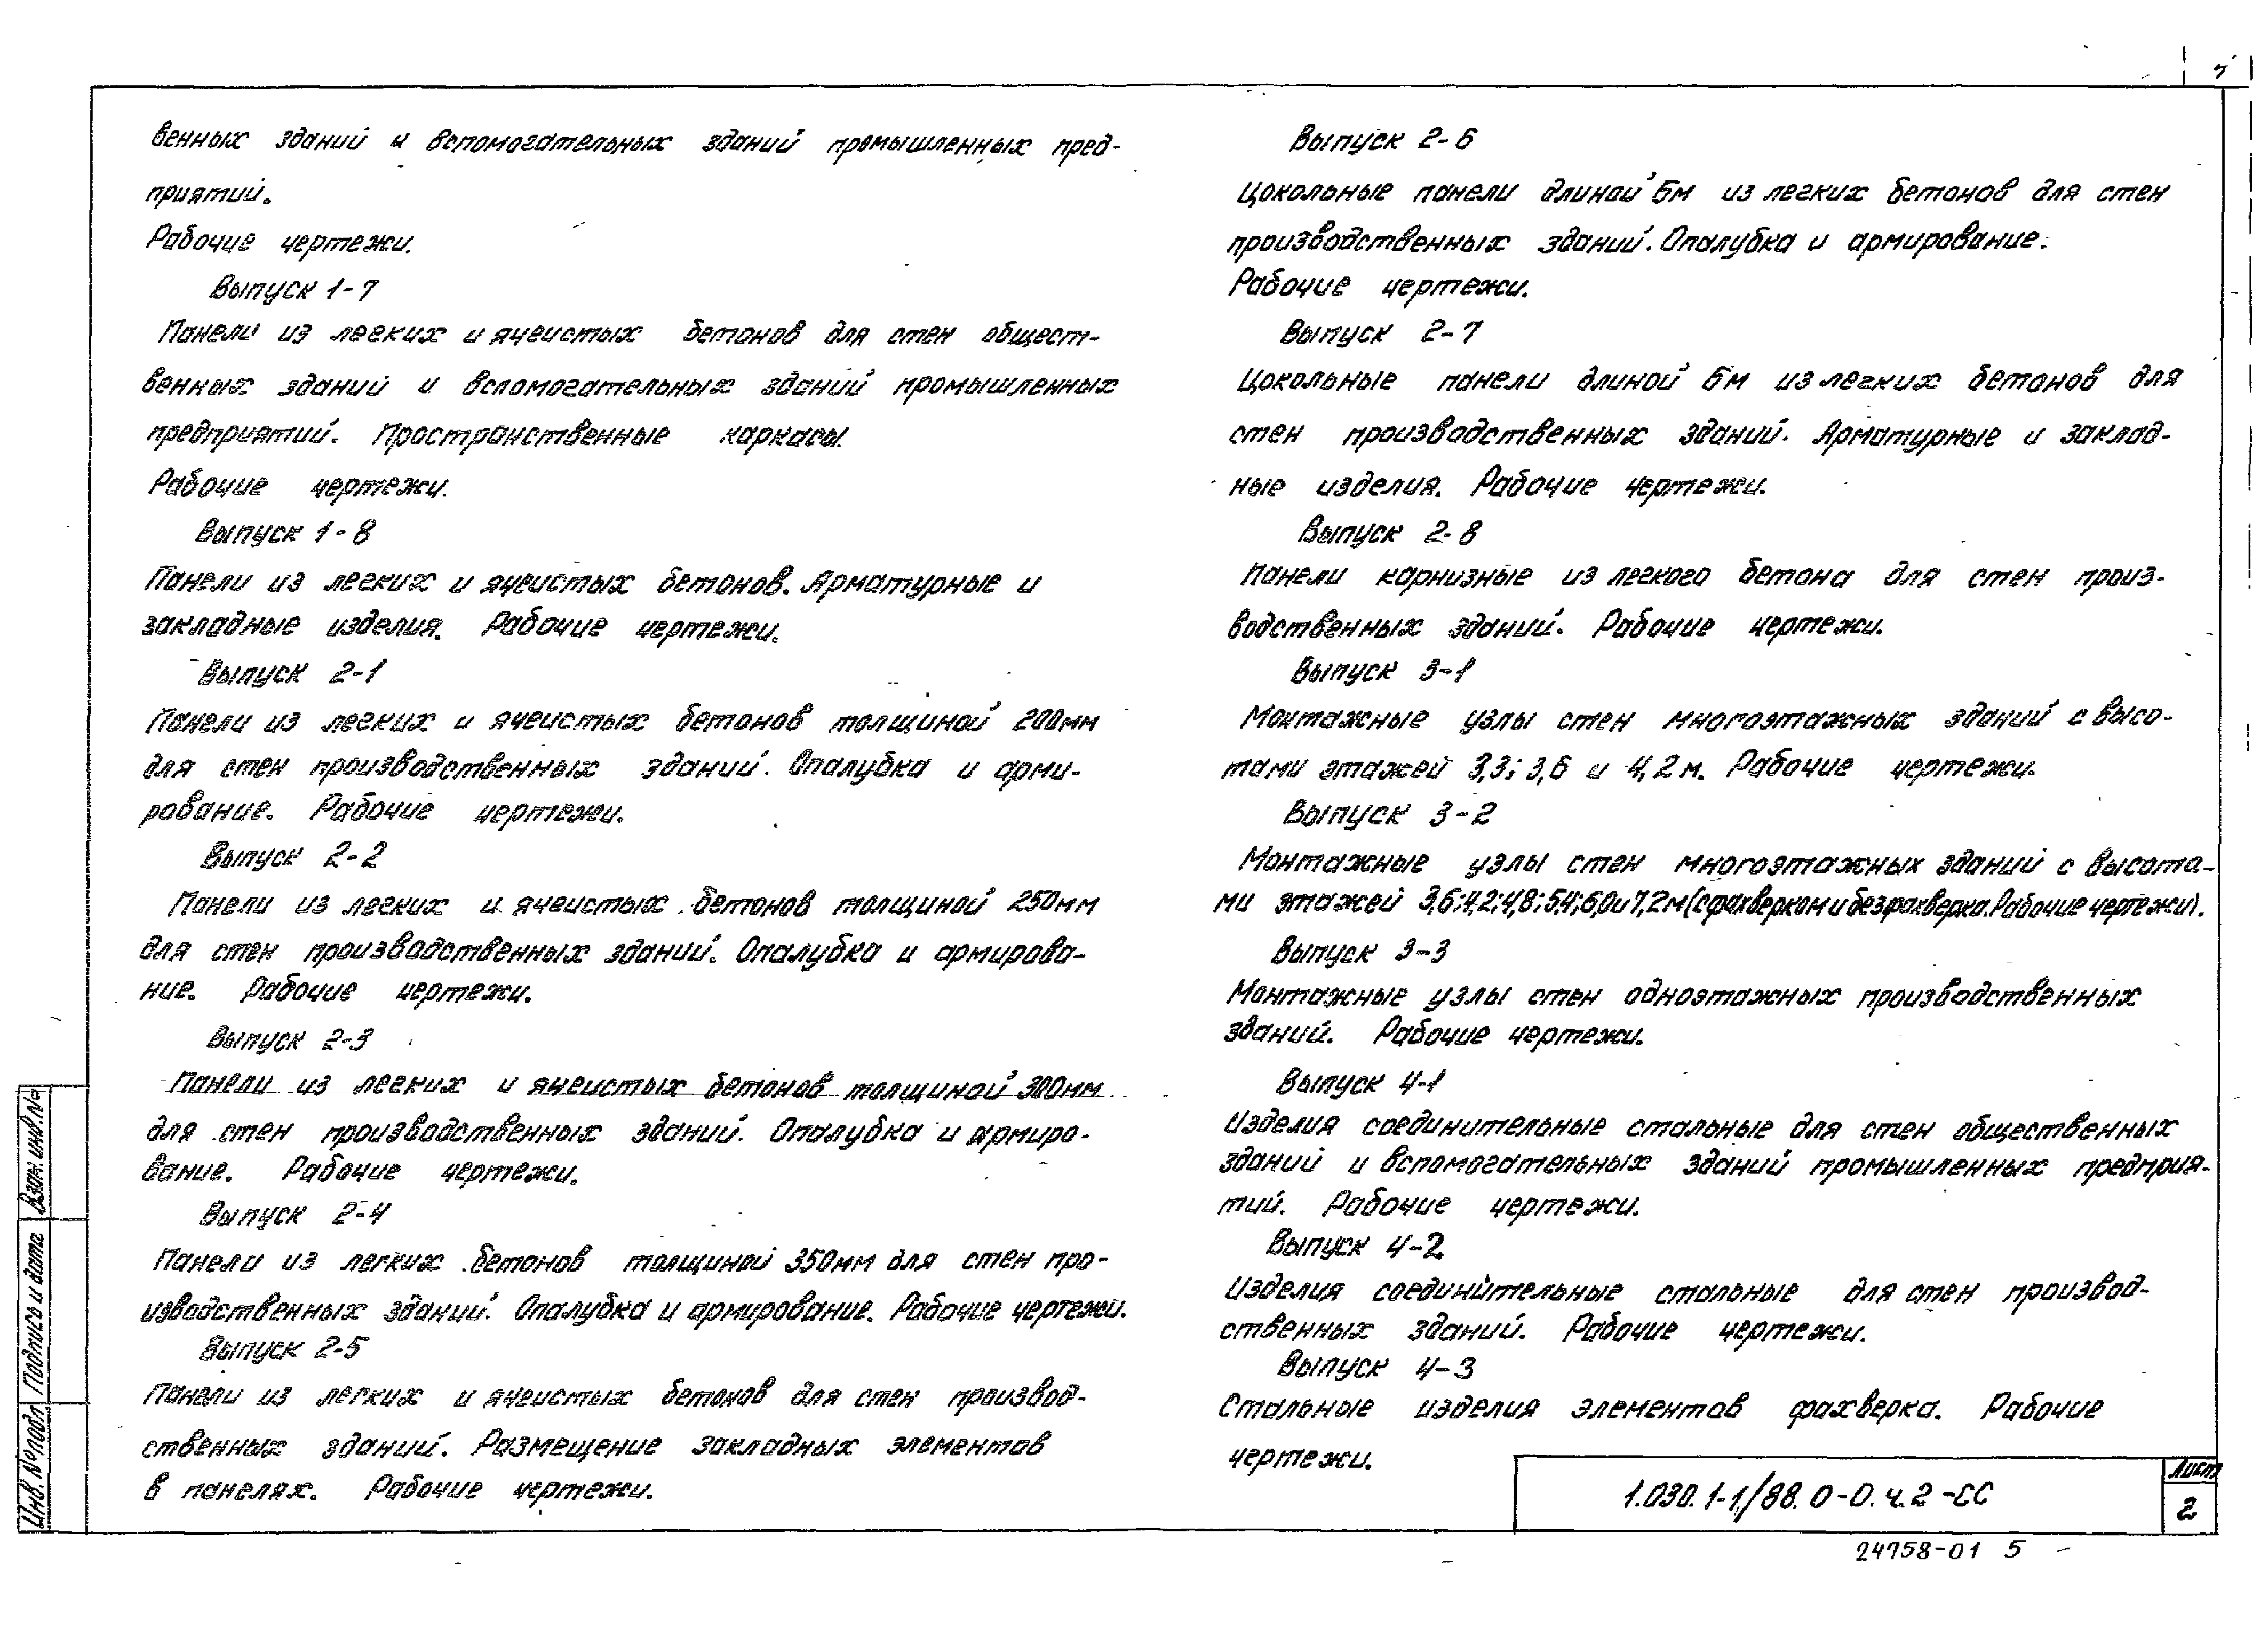 венных зданий и вспомогательных зданий промышленных пред-
приятий.
Рабочие чертежи.
Выпуск 1-7
Панели из легких и ячеистых бетонов для стен общест-
венных зданий и вспомогательных зданий промышленных
предприятий. Пространственные каркасы.
Рабочие чертежи.
Выпуск 1-8
Панели из легких и ячеистых бетонов. Арматурные и
закладные изделия. Рабочие чертежи.
Выпуск 2-1
Панели из легких и ячеистых бетонов толщиной 200мм
для стен производственных зданий. Опалубка и арми-
рование. Рабочие чертежи.
Выпуск 2-2
Панели из легких и ячеистых бетонов толщиной 250мм
для стен производственных зданий. Опалубка и армирова-
ние. Рабочие чертежи.
Выпуск 2-3
Панели из легких и ячеистых бетонов толщиной 300мм
для стен производственных зданий. Опалубка и армиро-
вание. Рабочие чертежи.
Выпуск 2-4
Панели из легких бетонов толщиной 350мм для стен про-
изводственных зданий. Опалубка и армирование. Рабочие чертежи.
Выпуск 2-5
Панели из легких и ячеистых бетонов для стен производ-
ственных зданий. Размещение закладных элементов
в панелях. Рабочие чертежи.
Выпуск 2-6
Цокольные панели длиной 6м из легких бетонов для стен
производственных зданий. Опалубка и армирование.
Рабочие чертежи.
Выпуск 2-7
Цокольные панели длиной 6м из легких бетонов для
стен производственных зданий. Арматурные и заклад-
ные изделия. Рабочие чертежи.
Выпуск 2-8
Панели карнизные из легкого бетона для стен произ-
водственных зданий. Рабочие чертежи.
Выпуск 3-1
Монтажные узлы стен многоэтажных зданий с высо-
тами этажей 3,3; 3,6 и 4,2м. Рабочие чертежи.
Выпуск 3-2
Монтажные узлы стен многоэтажных зданий с высота-
ми этажей 3,6; 4,2; 4,8; 5,4; 6,0 и 7,2м (с фахверком и без фахверка. Рабочие чертежи).
Выпуск 3-3
Монтажные узлы стен одноэтажных производственных
зданий. Рабочие чертежи.
Выпуск 4-1
Изделия соединительные стальные для стен общественных
зданий и вспомогательных зданий промышленных предприя-
тий. Рабочие чертежи.
Выпуск 4-2
Изделия соединительные стальные для стен производ-
ственных зданий. Рабочие чертежи.
Выпуск 4-3
Стальные изделия элементов фахверка. Рабочие
чертежи.
Взам. инв. №
Подпись и дата
Инв. № подл
1.030.1-1/88.0-0.ч.2-СС
Лист
2
24758-01 5